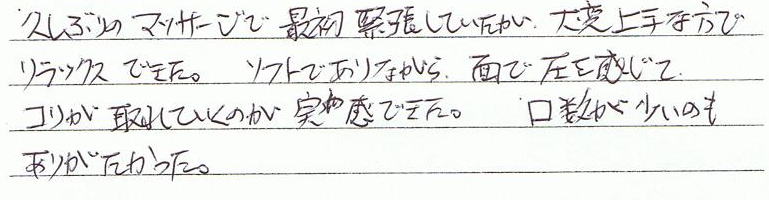 久しぶりのマッサージで最初緊張していたが、大変上手な方で
リラックスできた。 ソフトでありながら、面で圧を感じて
コリが取れていくのが実感できた。 口数が少いのも
ありがたかった。